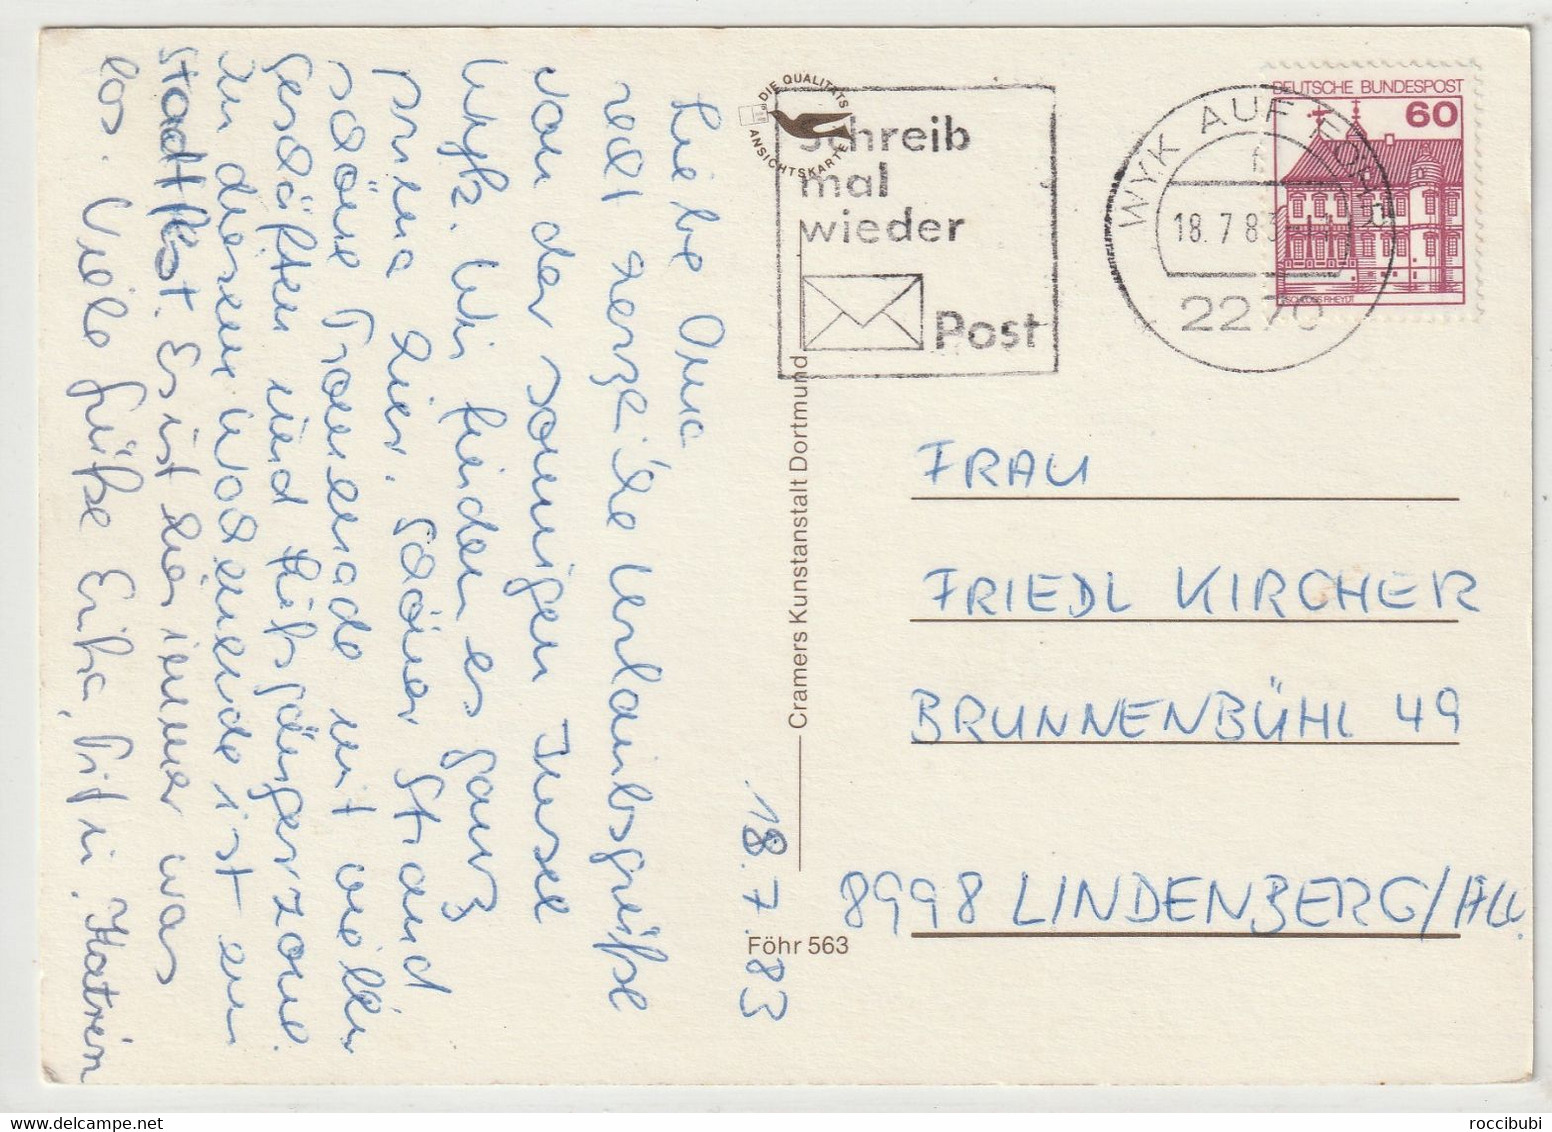 DIE QUALITÄTS
ANSICHTSKARTE
Schreib
mal
wieder
Post
WYK AUF FÖHR
f
18.7.83
2270
DEUTSCHE BUNDESPOST
60
SCHLOSS RHEYDT
18.7.83
Liebe Oma
recht herzliche Urlaubsgrüße
von der sonnigen Insel
Wyk. Wir finden es ganz
prima hier. Schöner Strand
schöne Promenade mit vielen
Geschäften und Fußgängerzone.
In diesem Wochenende ist ein
Stadtfest. Es ist hier immer was
los. Viele Grüße Erika, Katrin
Cramers Kunstanstalt Dortmund
Föhr 563
FRAU
FRIEDL KIRCHER
BRUNNENBÜHL 49
8998 LINDENBERG/Allg.
www.delcampe.net
roccibubi